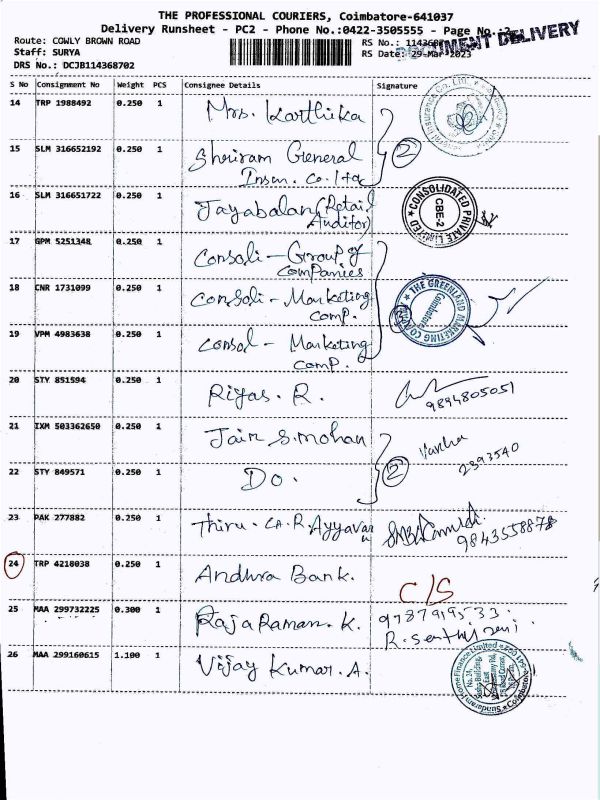 THE PROFESSIONAL COURIERS, Coimbatore-641037
Delivery Runsheet - PC2 - Phone No.:0422-3505555 - Page No.:2
Route: COWLY BROWN ROAD
RS No.: 114368
DELIVERY
Staff: SURYA
RS Date: 29-Mar-2023
DRS No.: DCJB114368702
S No Consignment No Weight PCS Consignee Details Signature
14 TRP 1988492 0.250 1 Mrs. Karthika
15 SLM 316652192 0.250 1 Shriram General
Insn. Co. Ltd
2
16 SLM 316651722 0.250 1 Jayabalan (Retail
Auditor)
CONSOLIDATED PRIVATE LIMITED
CBE-2
17 GPM 5251348 0.250 1 Consoli - Group of
Companies
18 CNR 1731099 0.250 1 Consoli - Marketing
Comp.
THE GREENLAND MARKETING COMPANY
Coimbatore
19 VPM 4983638 0.250 1 Consol - Marketing
Comp.
20 STY 851594 0.250 1 Riyas. R.
9894805051
21 IXM 503362650 0.250 1 Jain S. Mohan
2393540
22 STY 849571 0.250 1 Do.
2
23 PAK 277882 0.250 1 Thiru. CA. R. Ayyavan
9843558878
24 TRP 4218038 0.250 1 Andhra Bank.
C/S
25 MAA 299732225 0.300 1 Rajaraman. K.
R. Senthil
26 MAA 299160615 1.100 1 Vijay Kumar. A.
Sundaram Home Finance Limited